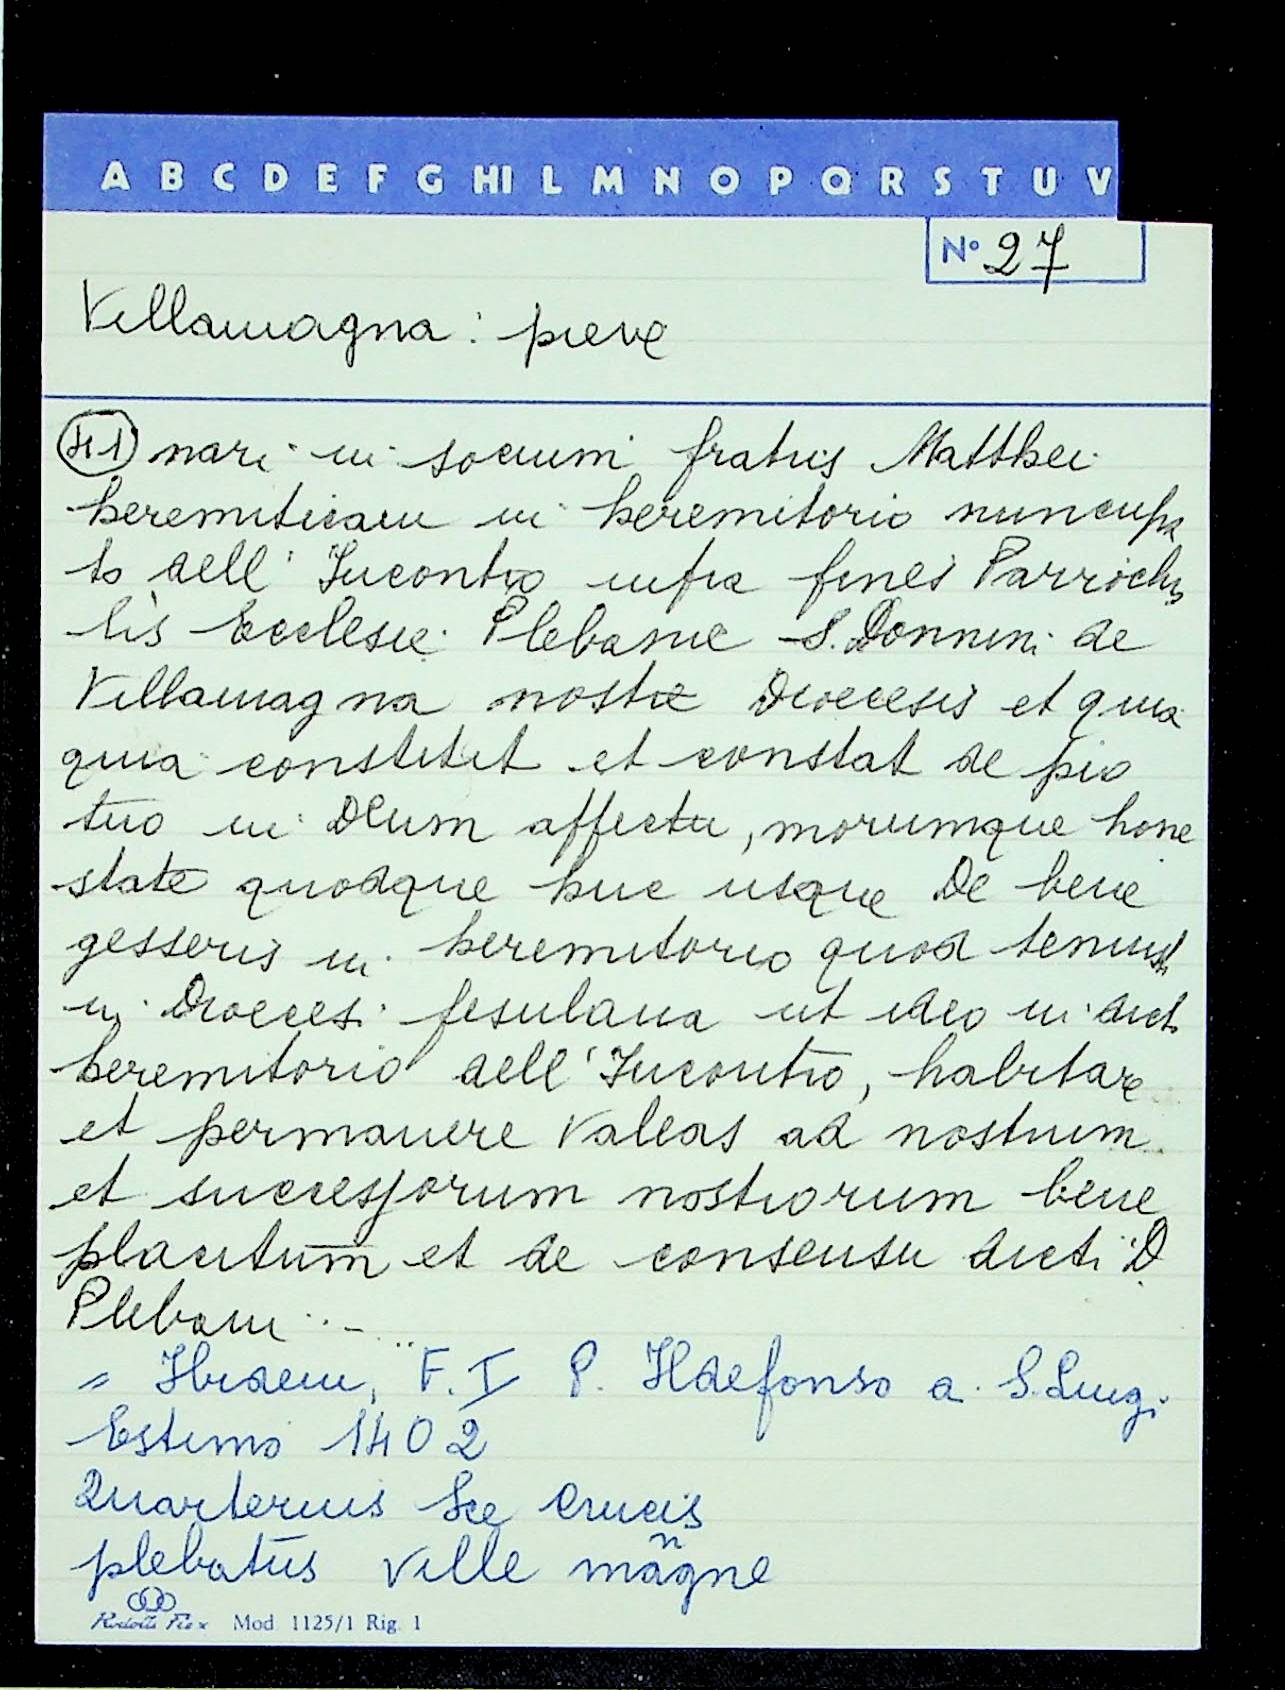 A B C D E F G HI L M N O P Q R S T U V
N° 27
Villamagna: pieve
41 nari in socium fratris Matthei
heremiticam in heremitorio nuncupa
to dell'Incontro infra fines Parrochia
lis Ecclesie Plebanie S. Donnini de
Villamagna nostre Diocesis et quia
quia constitit et constat de pio
tuo in Deum affectu, morumque hone
state quodque huc usque De bene
gesseris in heremitorio quod tenuisti
in Diocesi fesulana ut ideo in dict
heremitorio dell'Incontro, habitare
et permanere valeas ad nostrum
et successorum nostrorum bene
placitum et de consensu dicti D
Plebani..-
" Ibidem, F. I P. Ildefonso a S. Luigi
Estimo 1402
Quarterius Sce Crucis
plebatus Ville magne
Mod 1125/1 Rig. 1